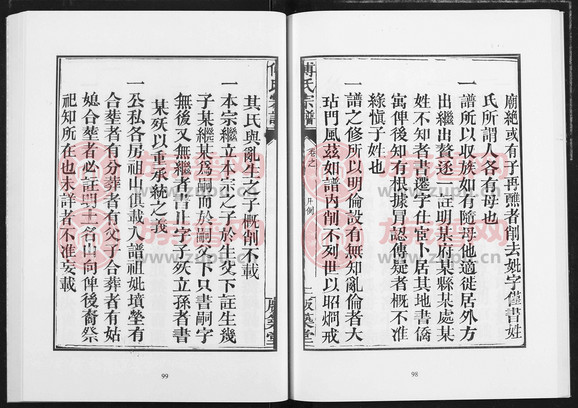 廟絶或有子再醮者削去妣字僅書姓
氏所謂人各有母也
一譜所以收族如有隨母他適徙居外方
出繼出贅逐一註明某府某縣某處某
姓不知者書遷字仕宦卜居其地書僑
寓俾後知有根據冒認傳疑者概不准
緣愼子姓也
一譜之修所以明倫設有無知亂倫者大
玷門風玆如譜內削不列世以昭炯戒
傅氏宗譜
卷之
凡例
98
其氏與亂生之子概削不載
一本宗繼立本宗之子於生父下註生幾
子某繼某爲嗣而於嗣父下只書嗣字
無後又無繼者書止字子歿立孫者書
某歿以重承統之義
一公私各房祖山俱載入譜祖妣墳塋有
合塟者有分葬者有父子合塟者有姑
媳合塟者必註明土名山向俾後裔祭
祀知所在也未詳者不准妄載
傅氏宗譜
99
族譜網
www.zupu.cn